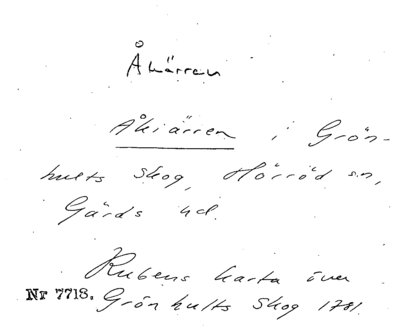 Åkärren
Åkiärren i Grön-
hults Skog, Hörröd sn,
Gärds hd.
Rubens karta över
Nr 7718. Grönhults Skog 1781.